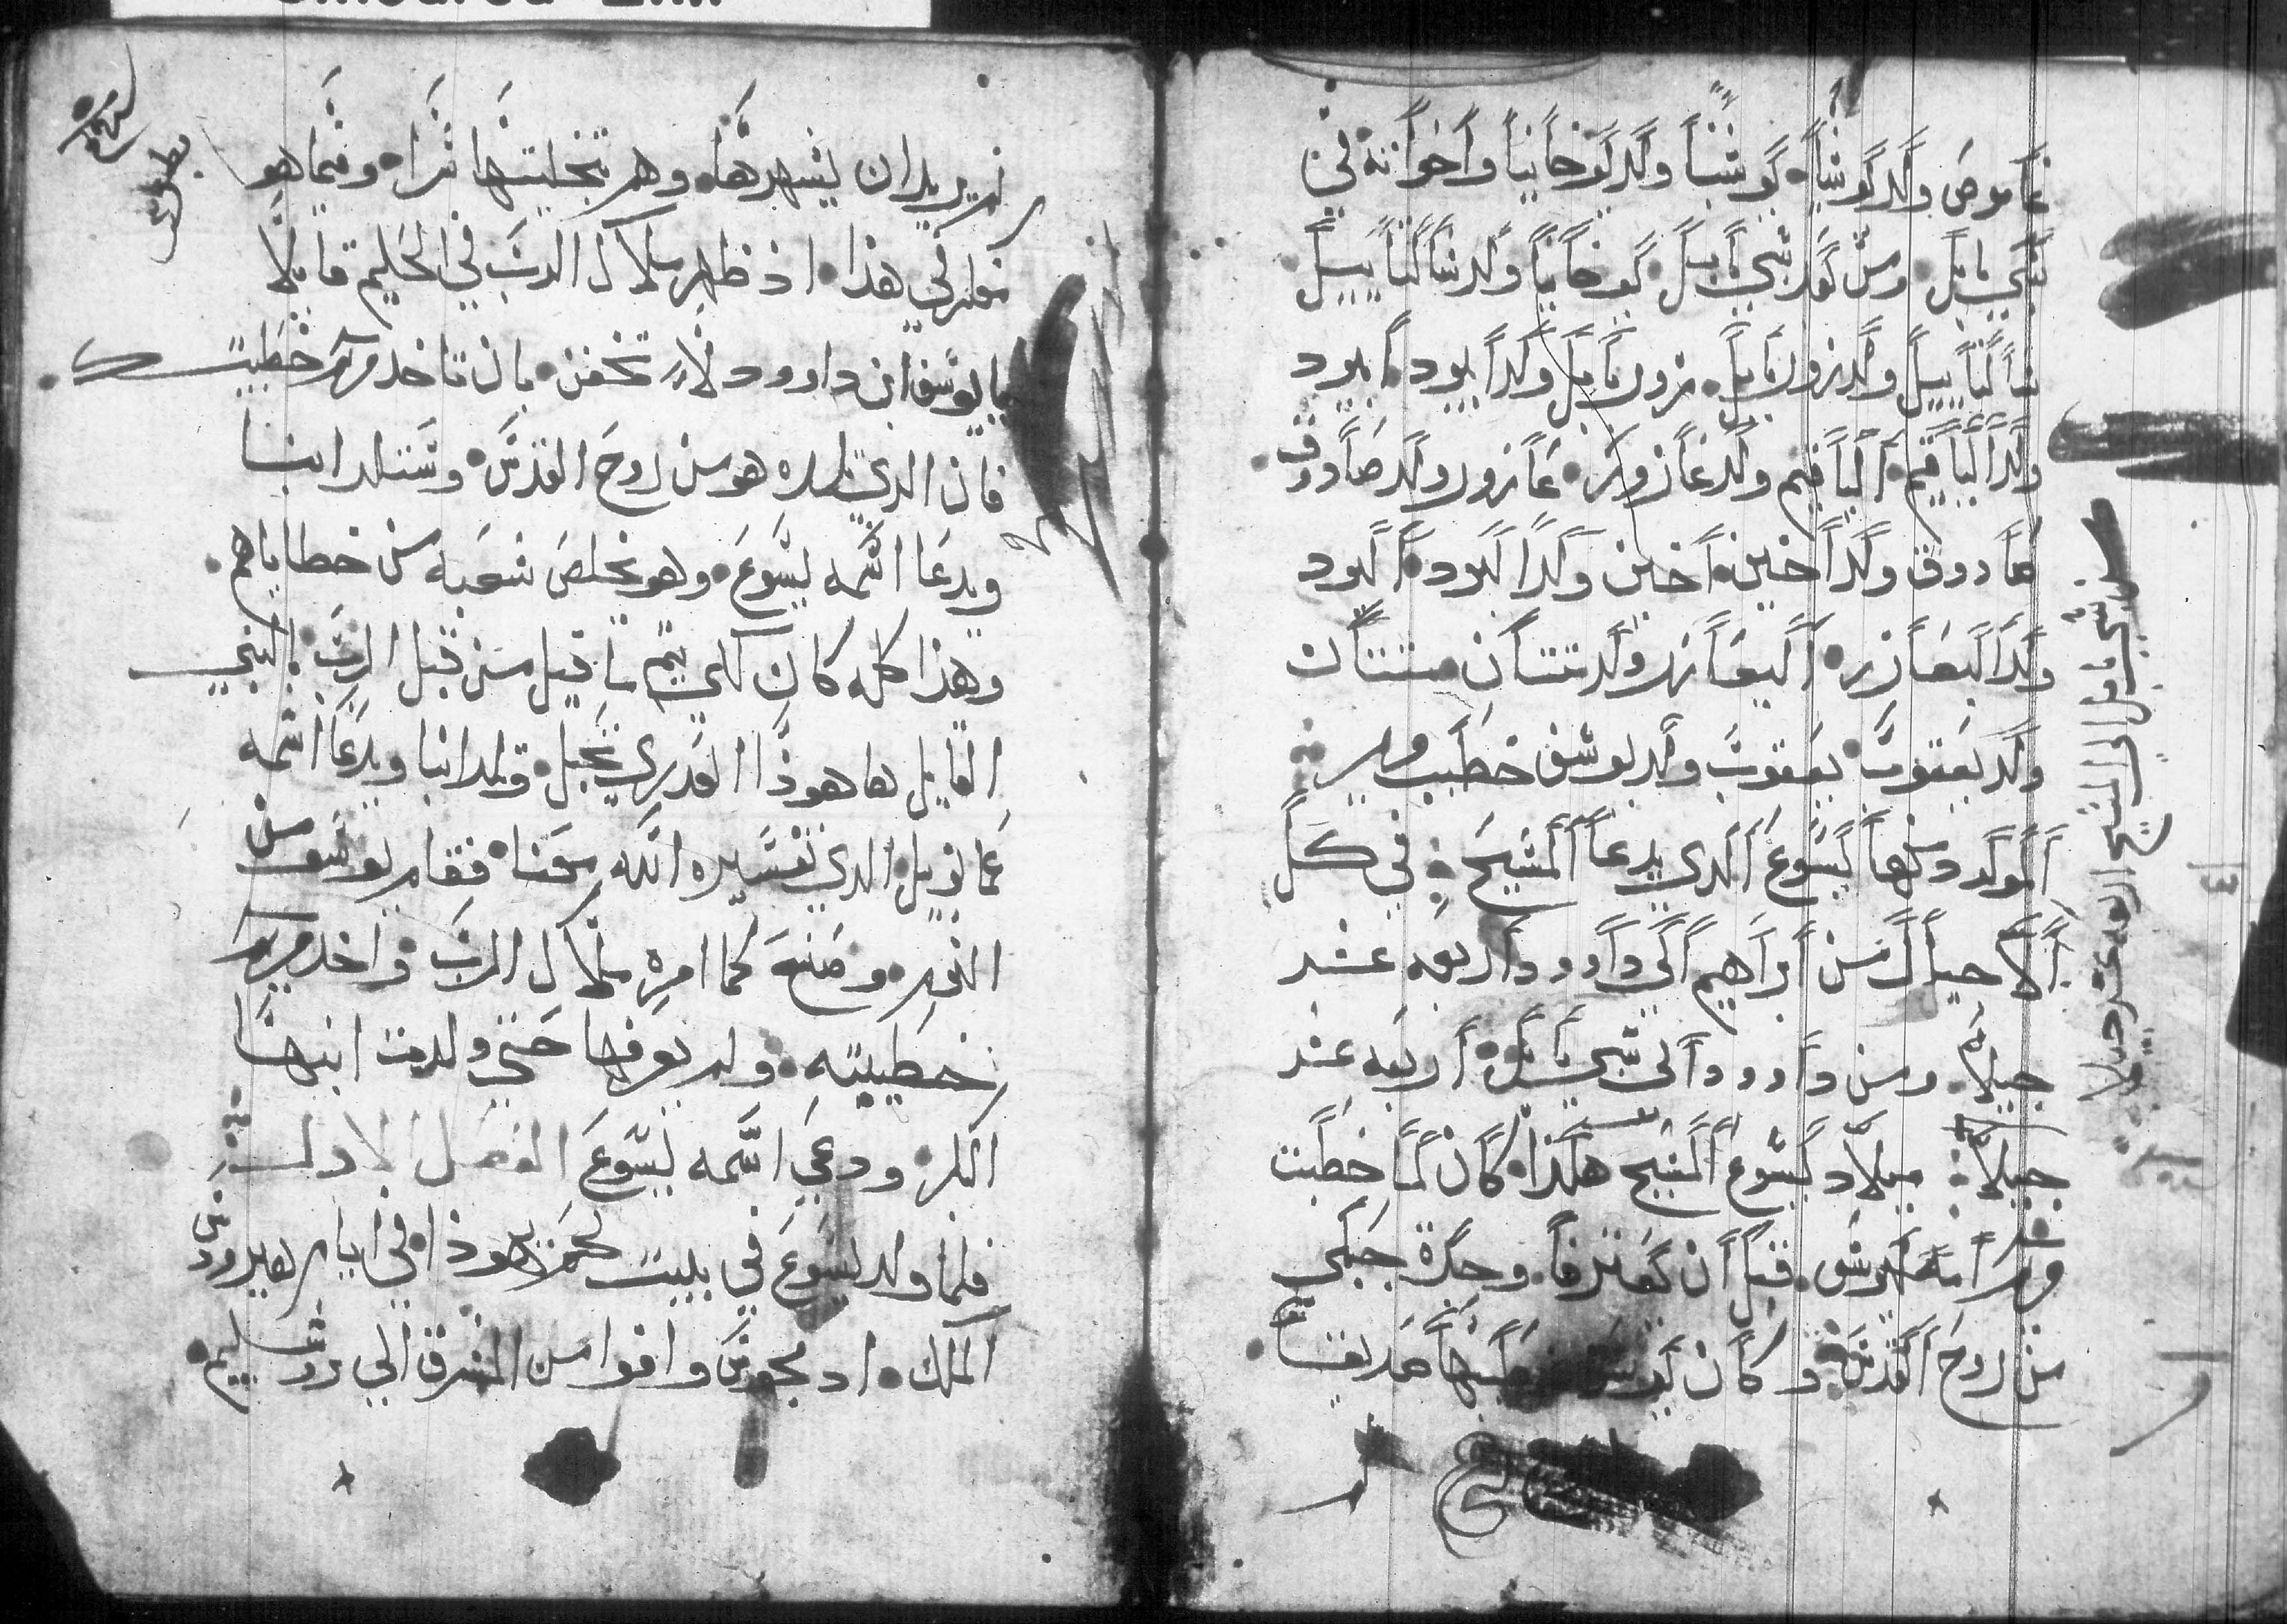 عاموص ولد يوشيا يوشيا ولد يوخانيا واخوانه في
سبي بابل ومن بعد سبي بابل يوخانيا ولد شالتاييل
شالتاييل ولد زوربابل زوربابل ولد ابيود ابيود
ولد الياقيم الياقيم ولد عازور عازور ولد صادوق
صادوق ولد اخين اخين ولد اليود اليود
ولد اليعازر اليعازر ولد متتان متتان
ولد يعقوب يعقوب ولد يوسف خطيب مريم
المولود منها يسوع الذي يدعا المسيح في كل
الاجيال من ابراهيم الي داوود اربعه عشر
جيلا ومن داوود الى سبي بابل اربعه عشر
جيلا ميلاد يسوع المسيح هكذا كان لما خطبت
مريم امه ليوسف قبل ان يعترفا وجدة حبلي
من روح القدس وكان يوسف خطيبها صديقا
ومن سبي بابل الي المسيح اربعه عشر جيلا
لم يريد ان يشهرها وهم بتخليتها سرا وفيما هو
مفكر في هذا اذ ظهر ملاك الرب في الحليم قايلا
يا يوسف ابن داوود لا تخف بان تاخد مريم خطيبتك
فان الدي تلده هو من روح القدس وستلد ابنا
ويدعا اسمه يسوع وهو يخلص شعبه من خطاياهم
وهذا كله كان لكي يتم ما قيل من قبل الرب بالنبي
القايل ها هوذا العدري تحبل وتلد ابنا ويدعا اسمه
عمانويل الدي تفسيره الله معنا فقام يوسف من
النوم وصنع كما امره ملاك الرب واخد مريم
خطيبته ولم يعرفها حتي ولدت ابنها
البكر ودعي اسمه يسوع الفصل الاول
فلما ولد يسوع في بيت لحم يهوذا في ايام هيرودس
الملك اد مجوس وافوا من المشرق الي يروشليم